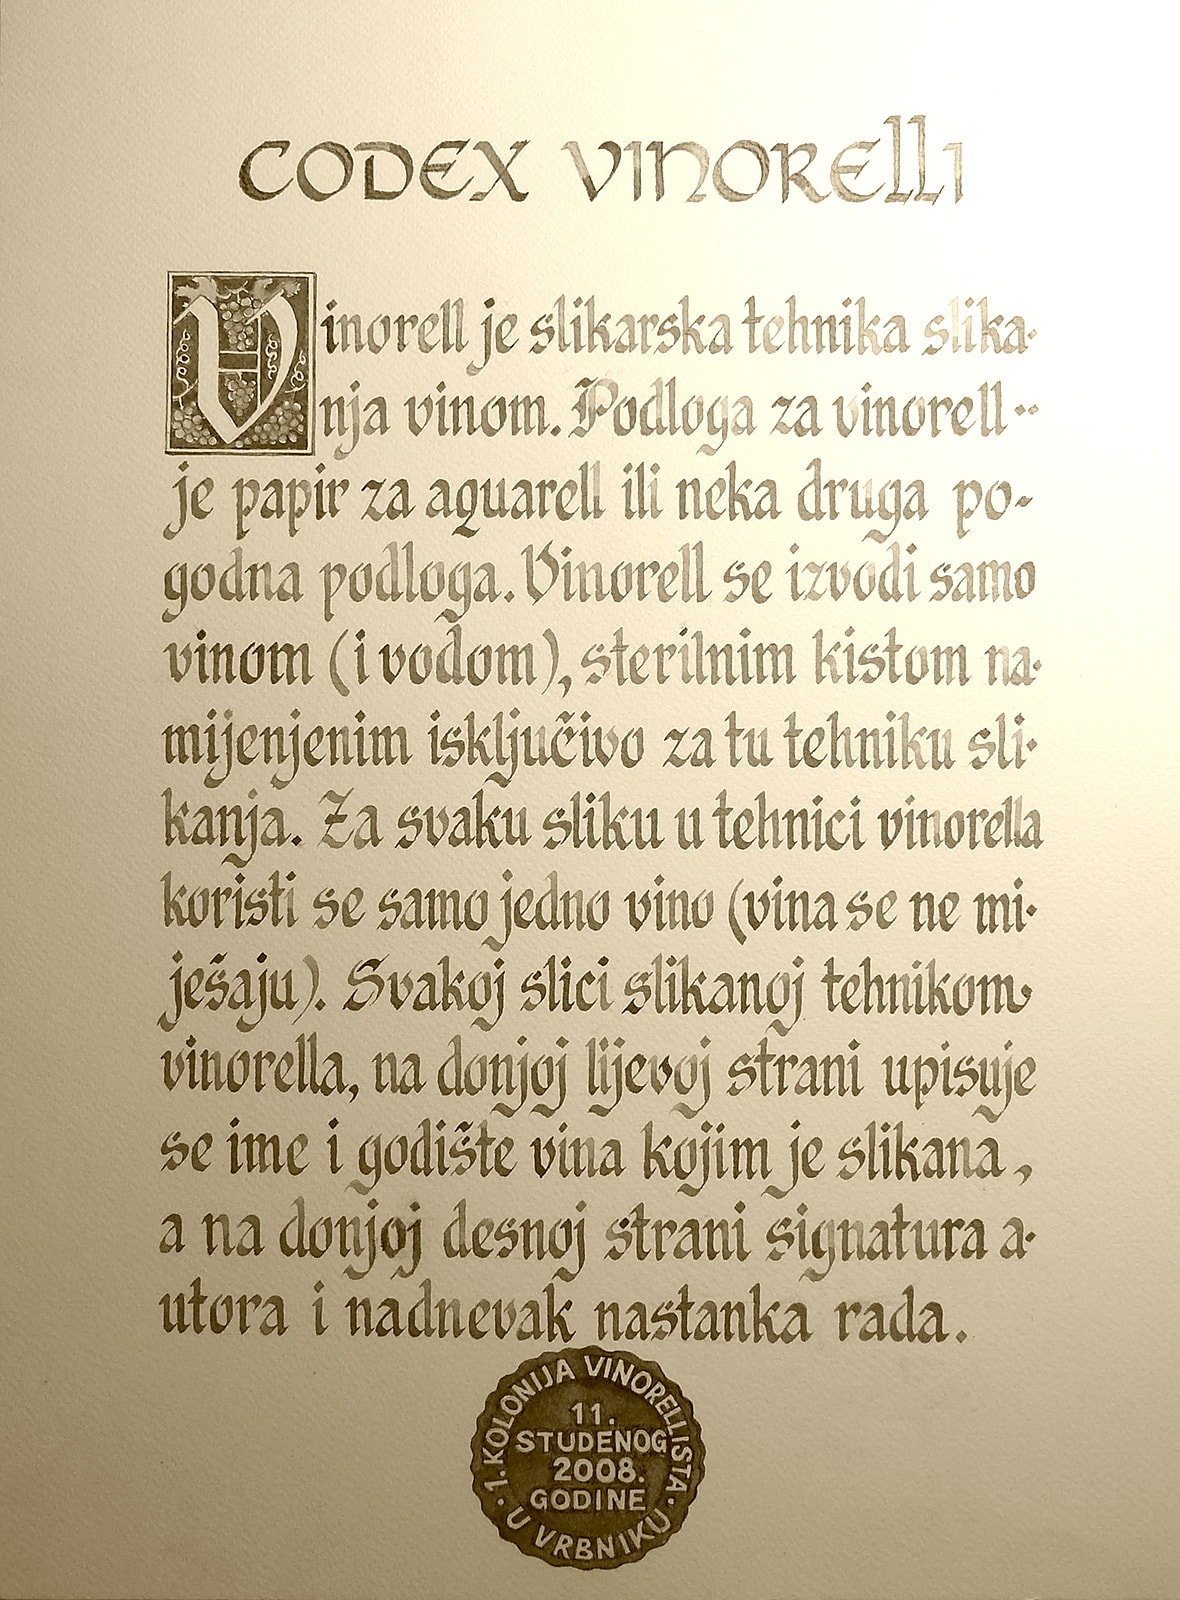 CODEX VINORELLI
Vinorell je slikarska tehnika slika-
nja vinom. Podloga za vinorell --
je papir za aquarell ili neka druga po-
godna podloga. Vinorell se izvodi samo
vinom (i vodom), sterilnim kistom na-
mijenjenim isključivo za tu tehniku sli-
kanja. Za svaku sliku u tehnici vinorella
koristi se samo jedno vino (vina se ne mi-
ješaju). Svakoj slici slikanoj tehnikom
vinorella, na donjoj lijevoj strani upisuje
se ime i godište vina kojim je slikana,
a na donjoj desnoj strani signatura a-
utora i nadnevak nastanka rada.
1. KOLONIJA VINORELLISTA
11.
STUDENOG
2008.
GODINE
· U VRBNIKU ·